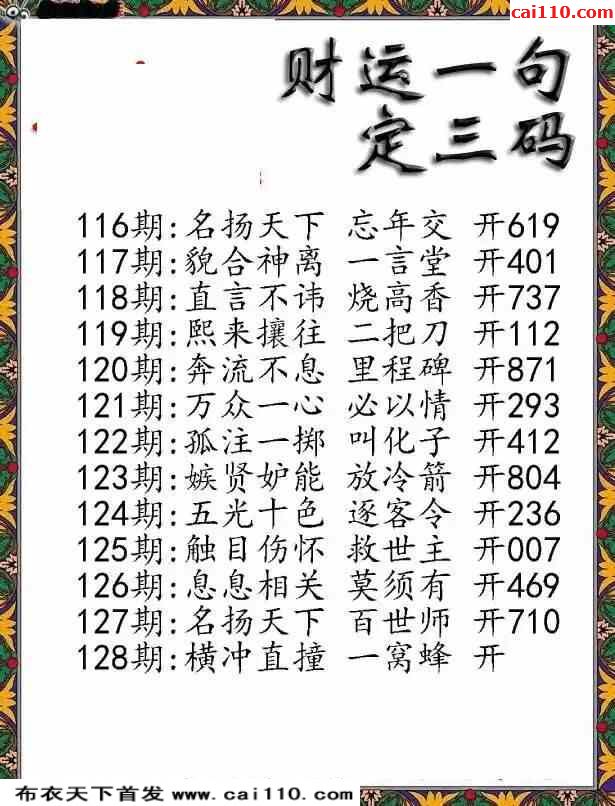 cai110.com
财运一句
定三码
116期:名扬天下 忘年交 开619
117期:貌合神离 一言堂 开401
118期:直言不讳 烧高香 开737
119期:熙来攘往 二把刀 开112
120期:奔流不息 里程碑 开871
121期:万众一心 必以情 开293
122期:孤注一掷 叫化子 开412
123期:嫉贤妒能 放冷箭 开804
124期:五光十色 逐客令 开236
125期:触目伤怀 救世主 开007
126期:息息相关 莫须有 开469
127期:名扬天下 百世师 开710
128期:横冲直撞 一窝蜂 开
布衣天下首发 www.cai110.com